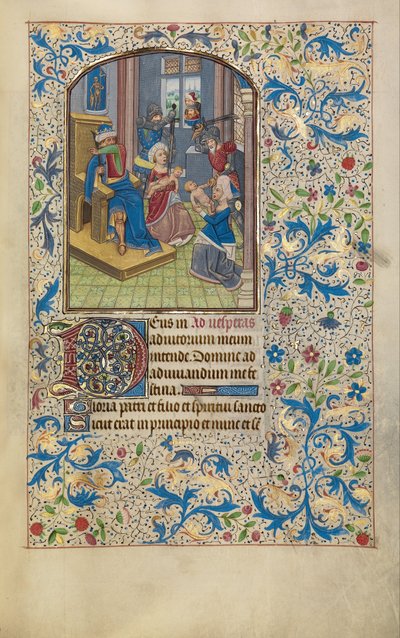 Deus in Ad vesperas
adiutorium meum
intende. Domine ad
adiuuandum me fe
stina.
Gloria patri et filio et spiritui sancto
sicut erat in principio et nunc et se